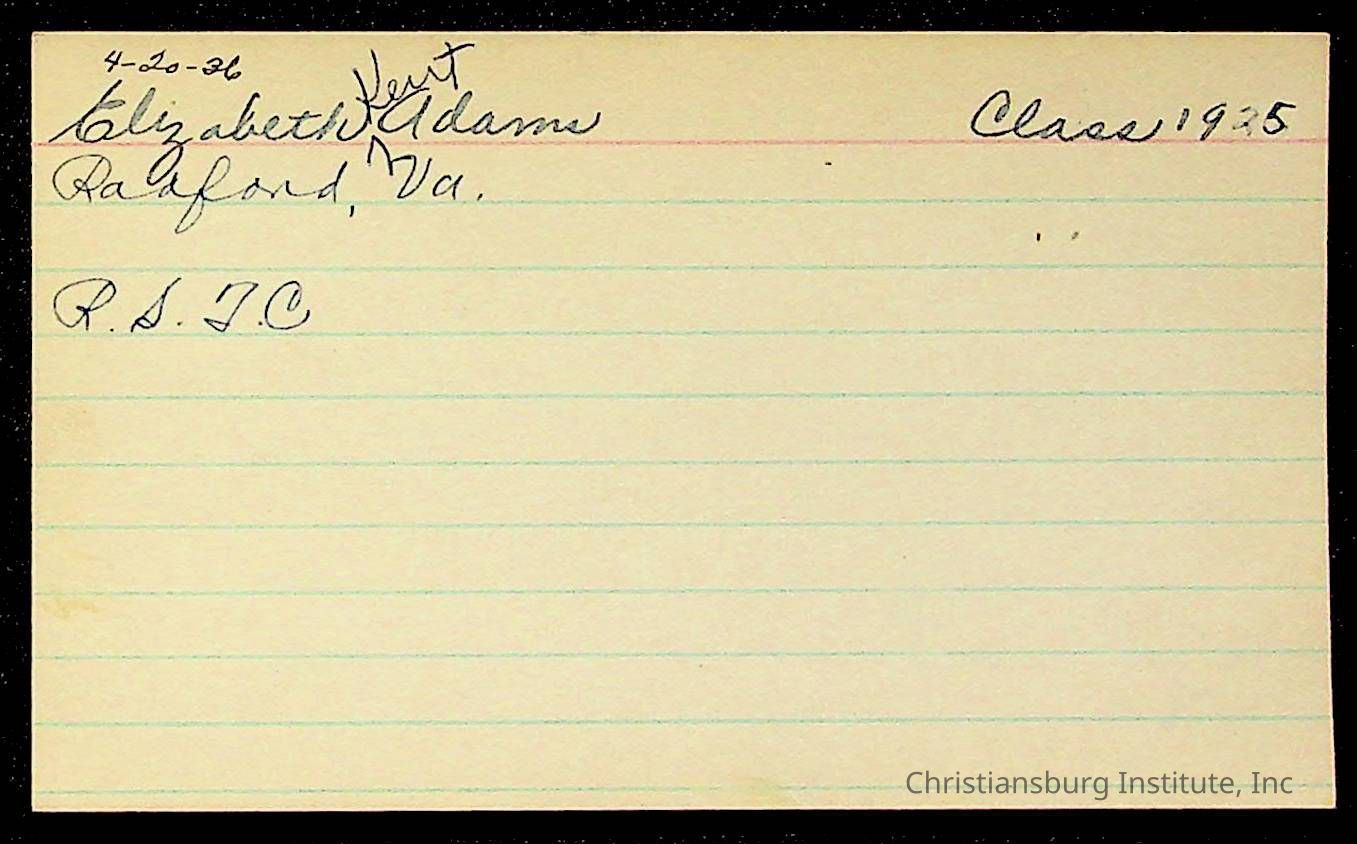 4-20-36
Kent
Elizabeth Adams Class 1925
Radford, Va.
R. S. T. C
Christiansburg Institute, Inc